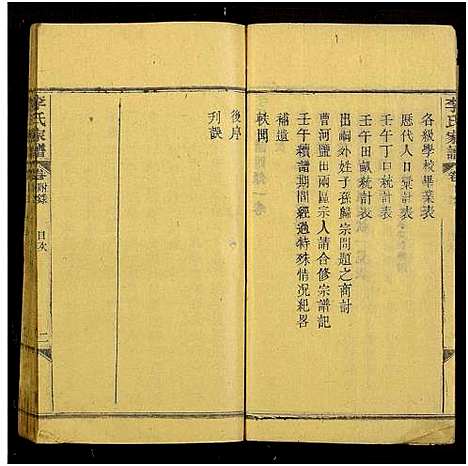 李氏家譜
各級學校畢業表
歷代人口彙計表
壬午丁口統計表
壬午田畝統計表
出嗣外姓子孫歸宗問題之商討
曹河鹽田兩區宗人請合修宗譜記
壬午續譜期間經過特殊情況紀畧
補遺
軼聞
後序
刋誤
李氏家譜
卷 附錄
目次
二